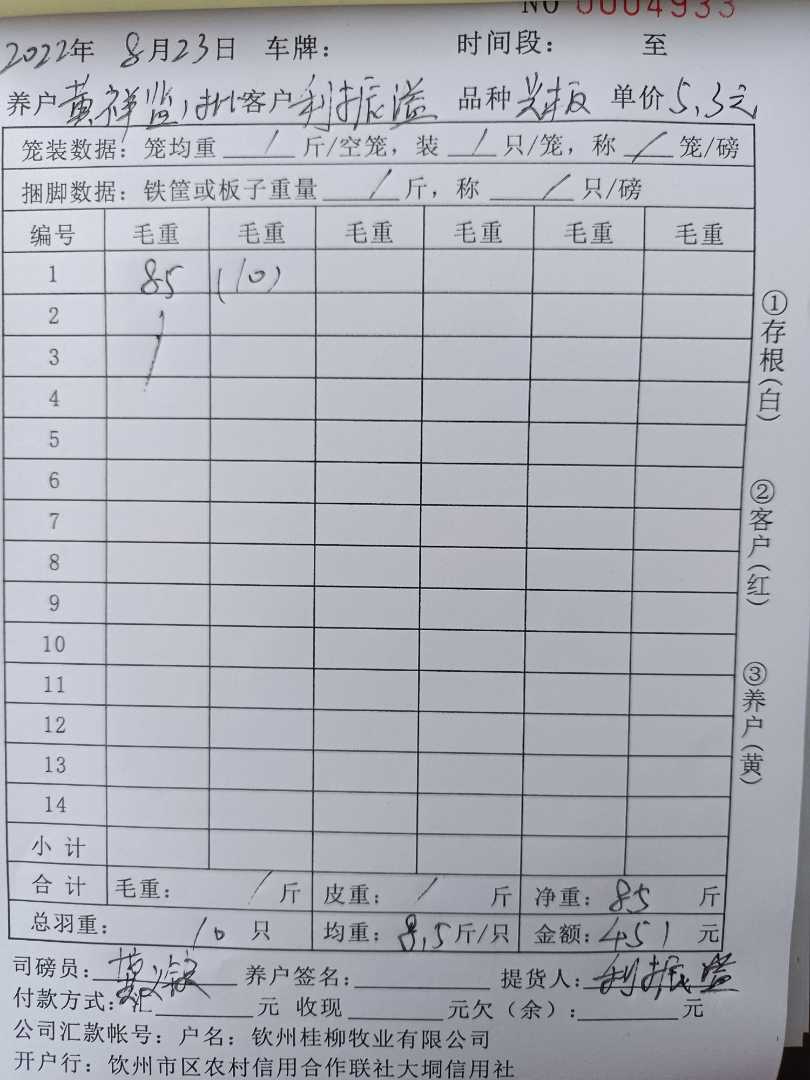 NO 0004933
2022年 8月23日 车牌： 时间段： 至
养户 黄祥监 客户 利振溢 品种 单价 5.3元
笼装数据：笼均重 / 斤/空笼，装 / 只/笼，称 / 笼/磅
捆脚数据：铁筐或板子重量 / 斤，称 / 只/磅
编号 毛重 毛重 毛重 毛重 毛重 毛重
1 85 (10)
2 /
3
4
5
6
7
8
9
10
11
12
13
14
小 计
合 计 毛重： / 斤 皮重： / 斤 净重：85 斤
总羽重： 10 只 均重：8.5斤/只 金额：451 元
司磅员： 养户签名： 提货人：利振溢
付款方式：汇 元 收现 元欠（余）： 元
公司汇款帐号：户名：钦州桂柳牧业有限公司
开户行：钦州市区农村信用合作联社大垌信用社
①存根（白）
②客户（红）
③养户（黄）